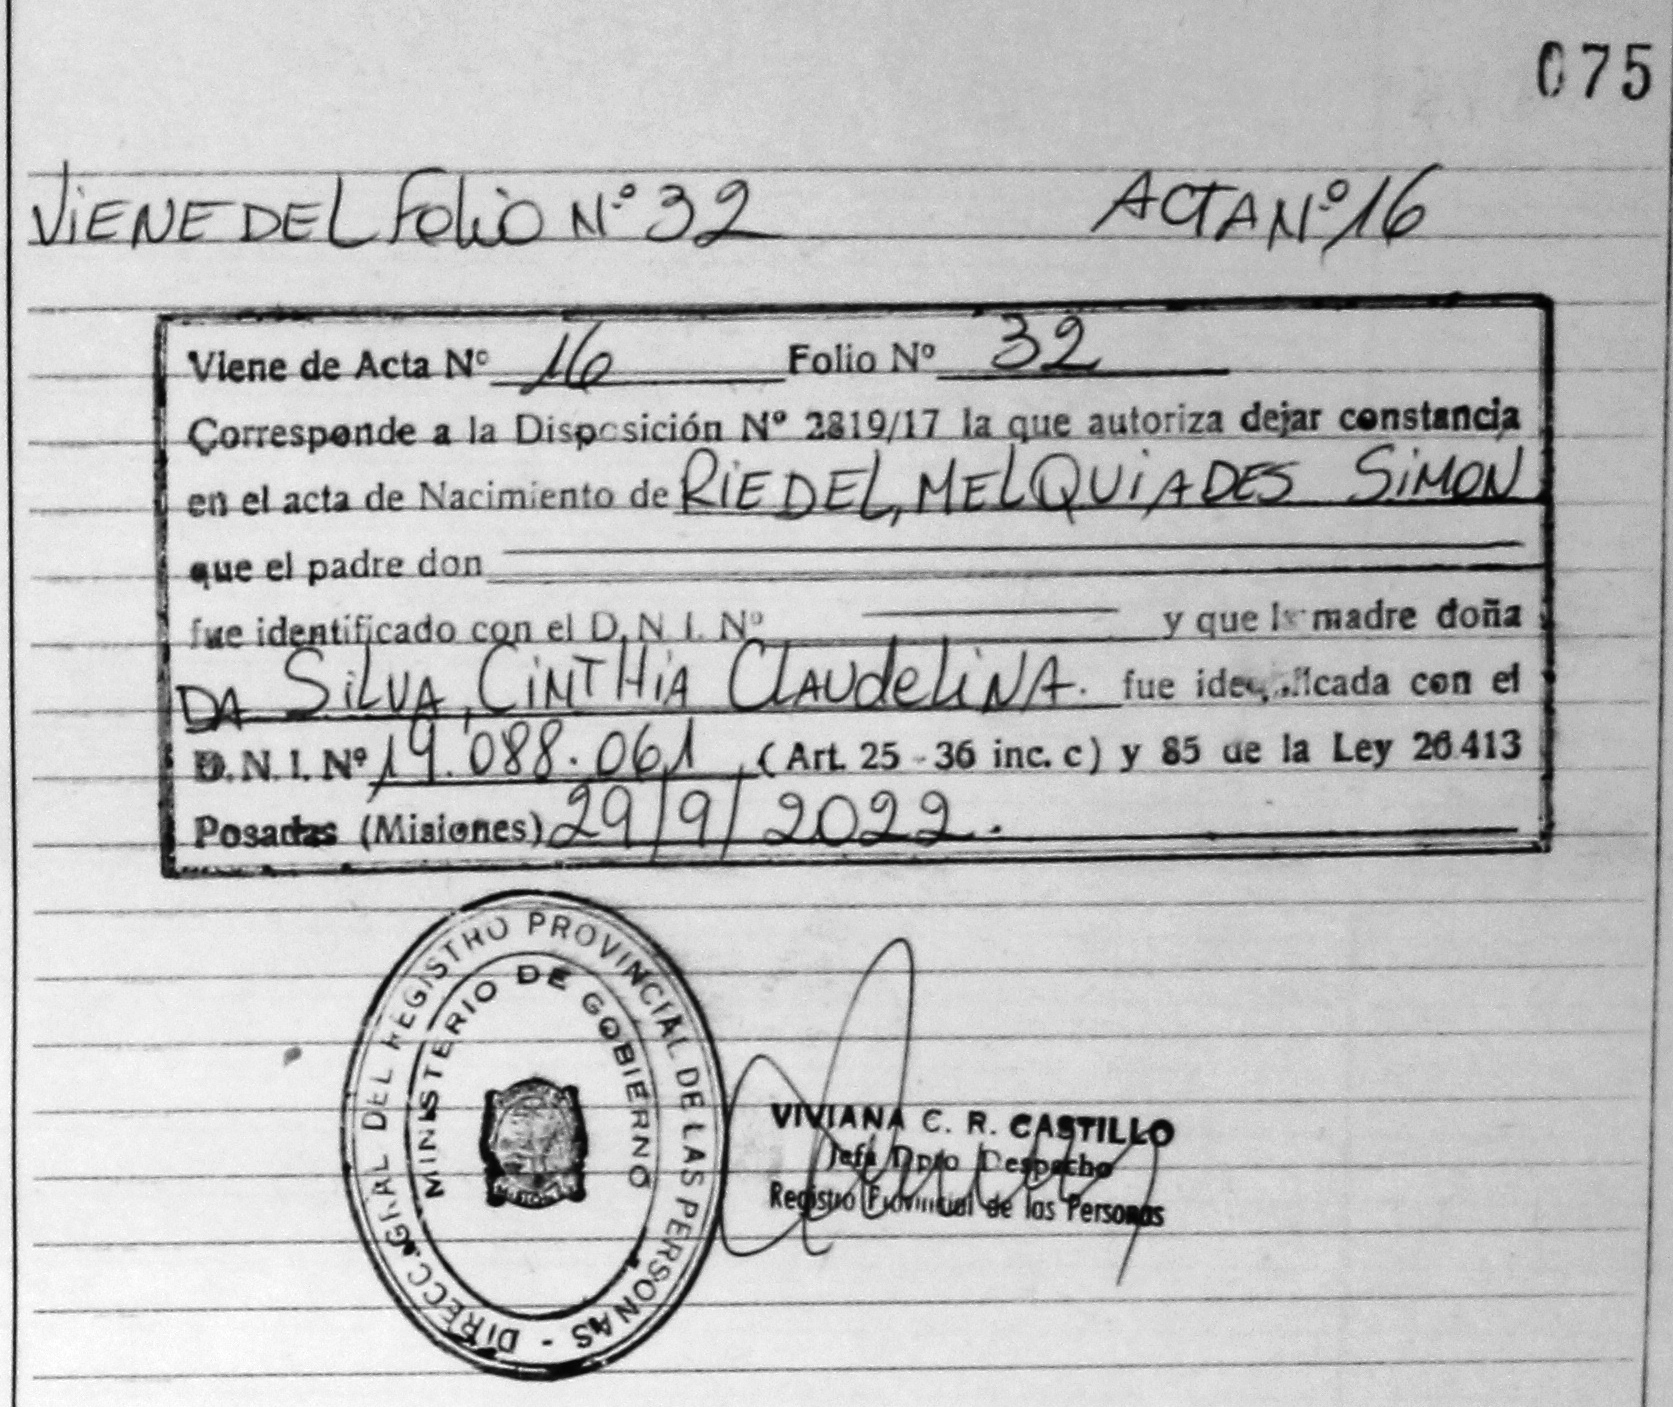 075
ViENE DEL FOLiO N° 32 ACTA N° 16
Viene de Acta N° 16 Folio N° 32
Corresponde a la Disposición N° 2819/17 la que autoriza dejar constancia
en el acta de Nacimiento de RiEDEL, MELQUiADES SiMON
que el padre don
fue identificado con el D.N.I. N° y que la madre doña
DA SiLVA, CiNTHiA CLAUdELiNA. fue identificada con el
D.N.I. N° 19.088.061, (Art. 25 - 36 inc. c) y 85 de la Ley 26.413
Posadas (Misiones) 29/9/2022.
DIRECC. GRAL DEL REGISTRO PROVINCIAL DE LAS PERSONAS -
MINISTERIO DE GOBIERNO
VIVIANA C. R. CASTILLO
Jefa Dpto Despacho
Registro Provincial de las Personas